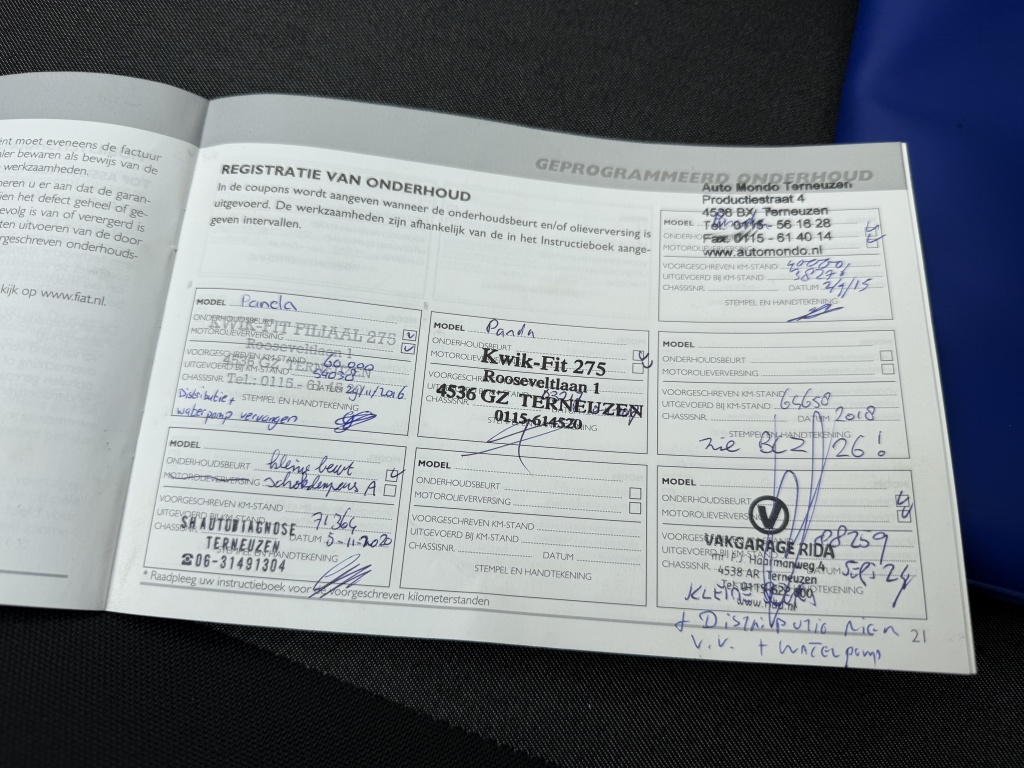 ent moet eveneens de factuur
ler bewaren als bewijs van de
werkzaamheden.
eren u er aan dat de garan-
ien het defect geheel of ge-
evolg is van of verergerd is
ten uitvoeren van de door
rgeschreven onderhouds-
kijk op www.fiat.nl.
GEPROGRAMMEERD ONDERHOUD
REGISTRATIE VAN ONDERHOUD
In de coupons wordt aangeven wanneer de onderhoudsbeurt en/of olieverversing is
uitgevoerd. De werkzaamheden zijn afhankelijk van de in het Instructieboek aange-
geven intervallen.
Auto Mondo Terneuzen
Productiestraat 4
4538 BX Terneuzen
MODEL
Tel. 0115 - 56 16 28
Fax. 0115 - 61 40 14
www.automondo.nl
VOORGESCHREVEN KM-STAND
UITGEVOERD BIJ KM-STAND
CHASSISNR. DATUM 2/9/15
STEMPEL EN HANDTEKENING
MODEL Panda
ONDERHOUDSBEURT
KWIK-FIT FILIAAL 275
MOTOROLIEVERVERSING
Rooseveltlaan 1
VOORGESCHREVEN KM-STAND 60.000
UITGEVOERD BIJ KM-STAND 54038
CHASSISNR. DATUM 29/11/2016
Distributie +
STEMPEL EN HANDTEKENING
waterpomp vervangen
MODEL Panda
ONDERHOUDSBEURT
Kwik-Fit 275
Rooseveltlaan 1
4536 GZ TERNEUZEN
0115-614520
MODEL
ONDERHOUDSBEURT
MOTOROLIEVERVERSING
VOORGESCHREVEN KM-STAND
UITGEVOERD BIJ KM-STAND 64658
CHASSISNR. DATUM 2018
STEMPEL EN HANDTEKENING
zie BLZ 26!
MODEL
ONDERHOUDSBEURT kleine beurt
MOTOROLIEVERVERSING schokdempers A
VOORGESCHREVEN KM-STAND
UITGEVOERD BIJ KM-STAND 71.364
SH AUTODIAGNOSE
CHASSISNR. DATUM 5-11-2020
TERNEUZEN
STEMPEL EN HANDTEKENING
☎06-31491304
MODEL
ONDERHOUDSBEURT
MOTOROLIEVERVERSING
VOORGESCHREVEN KM-STAND
UITGEVOERD BIJ KM-STAND
CHASSISNR. DATUM
STEMPEL EN HANDTEKENING
MODEL
ONDERHOUDSBEURT
MOTOROLIEVERVERSING
VOORGESCHREVEN
UITGEVOERD BIJ KM-STAND 88259
VAKGARAGE RIDA
4538 AR Terneuzen
KLEINE
+ Distributie riem
V.V. + WATERpomp
* Raadpleeg uw instructieboek voor de voorgeschreven kilometerstanden
21